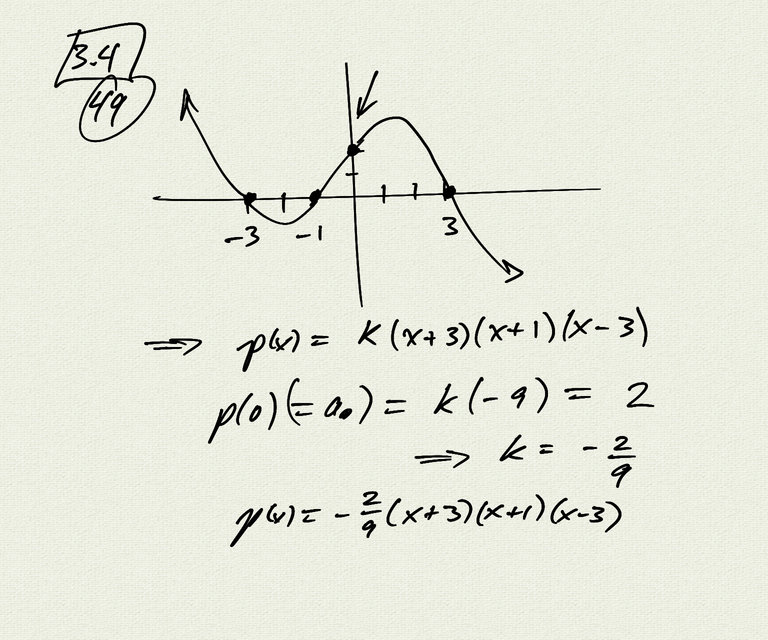 3.4
49
-3 -1 3
⟹ p(x) = k(x+3)(x+1)(x-3)
p(0)(=a₀) = k(-9) = 2
⟹ k = -2/9
p(x) = -2/9(x+3)(x+1)(x-3)